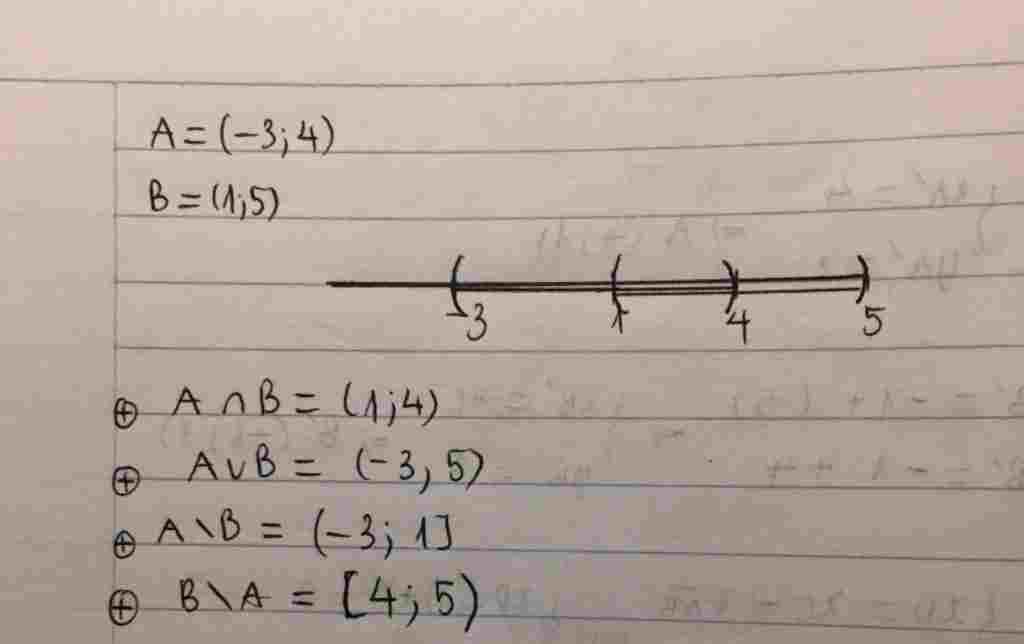 A = (-3; 4)
B = (1; 5)
-3 1 4 5
⊕ A ∩ B = (1; 4)
⊕ A ∪ B = (-3, 5)
⊕ A \ B = (-3; 1]
⊕ B \ A = [4; 5)